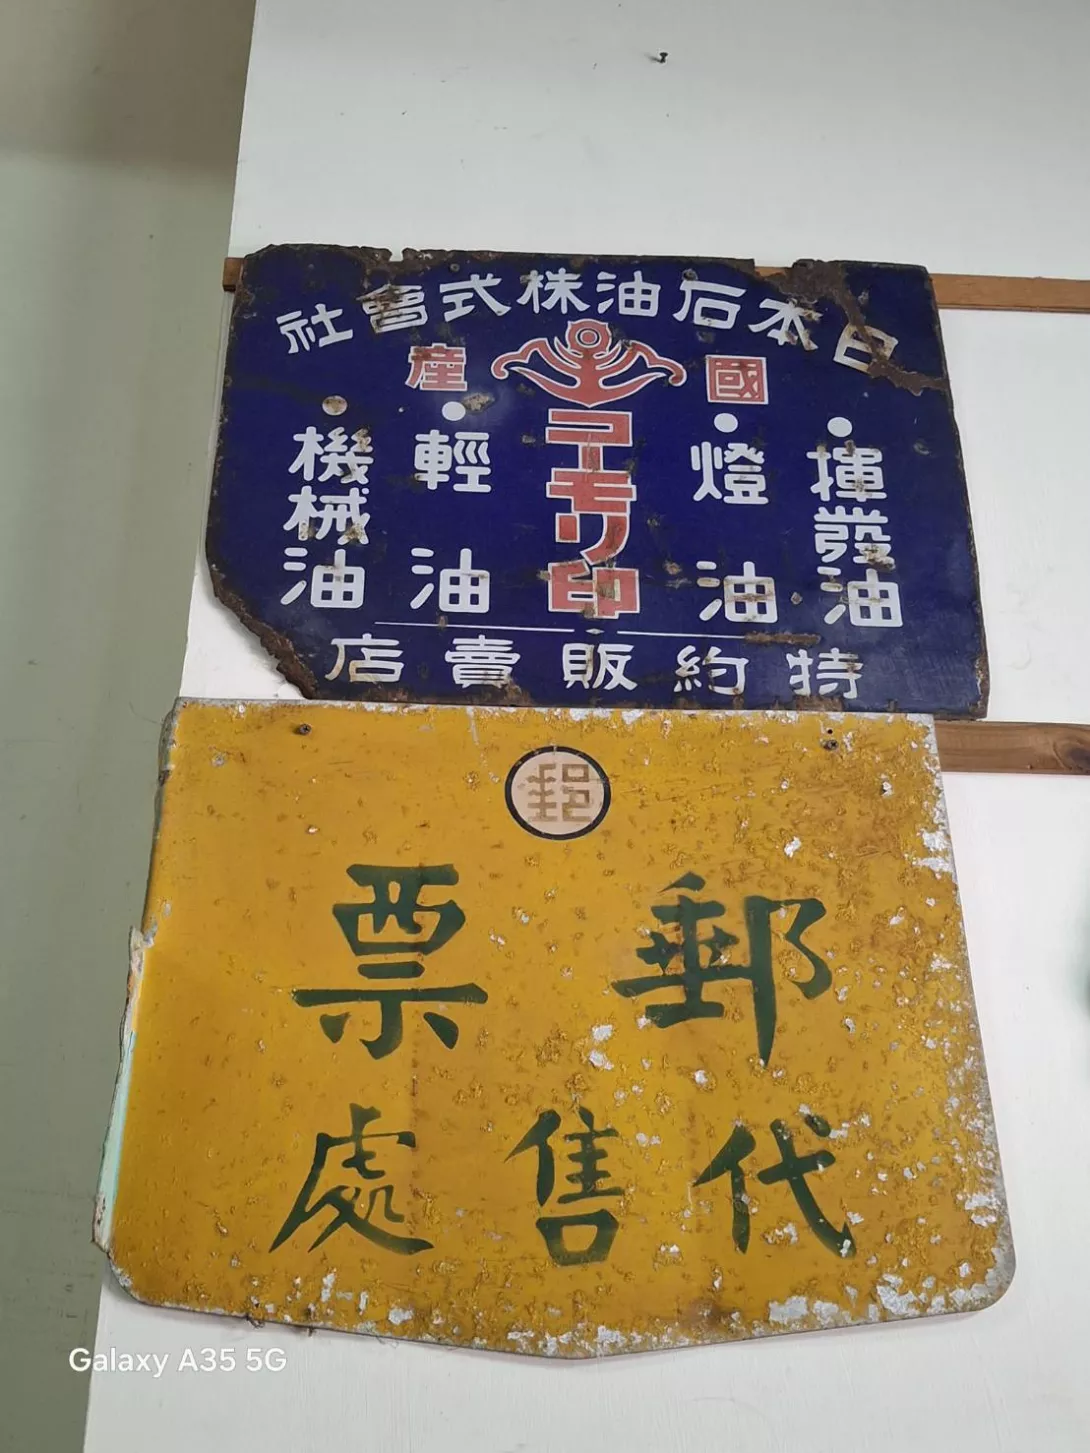 日本石油株式會社
國產
コーモリ印
●揮發油
●燈油
●輕油
●機械油
特約販賣店
郵
郵票
代售處
Galaxy A35 5G